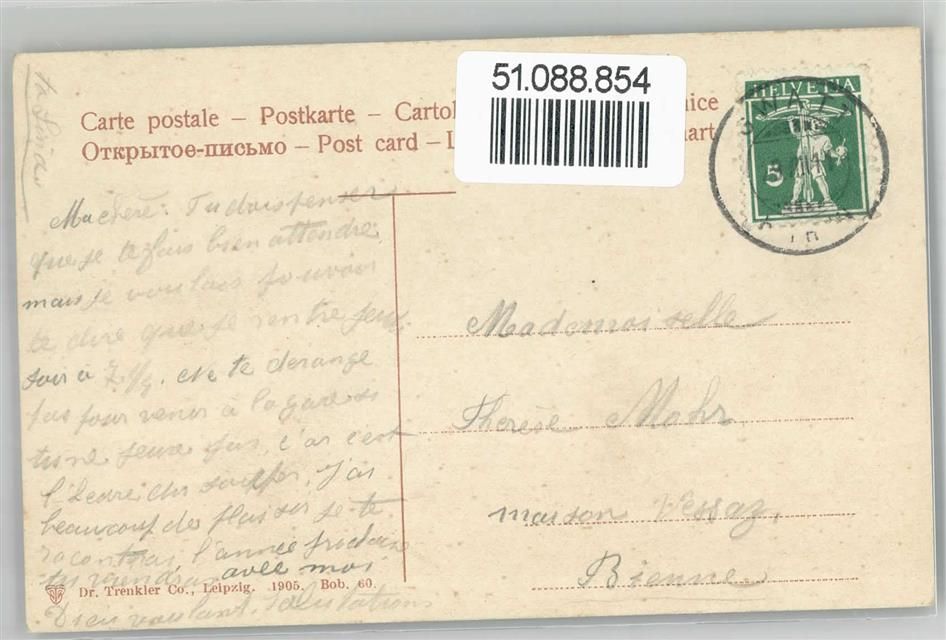 51.088.854
Carte postale – Postkarte –
Открытое-письмо – Post card –
HELVETIA
5
Ma chère. Tu dois penser
que je te fais bien attendre
mais je voulais pouvoir
te dire que je rentre
soir à 7. Ne te derange
pas pour venir à la gare si
tu ne peux pas, car c'est
l'heure du souper. J'ai
beaucoup de plaisir je te
raconterai, l'année prochaine
tu viendras avec moi
Dieu voulant. Salutations
ta
Mademoiselle
Therèse Mohr
maison Vessaz,
Bienne
Dr. Trenkler Co., Leipzig. 1905. Bob. 60.